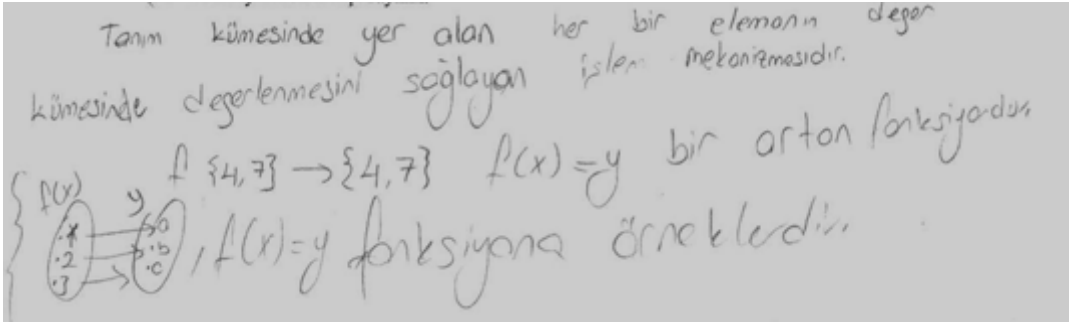 Tanım kümesinde yer alan her bir elemanın değer
kümesinde değerlenmesini sağlayan işlem mekanizmasıdır.
f {4,7} → {4,7} f(x)=y bir artan fonksiyondur.
f(x) y
.1 .a
.2 .b
.3 .c
, f(x)=y fonksiyona örneklerdir.